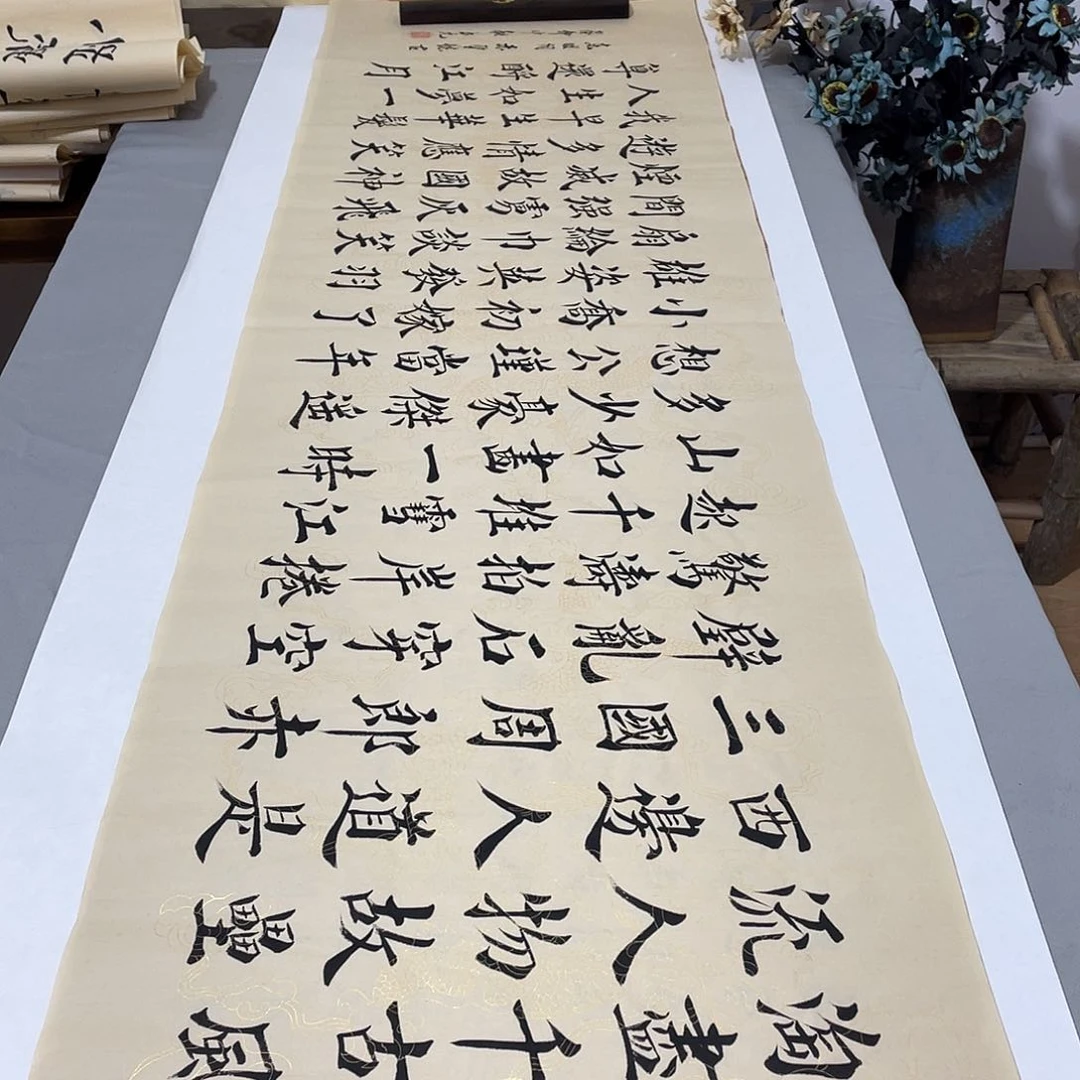 淘盡千古風
流人物故壘
西邊人道是
三國周郎赤
壁亂石穿空
驚濤拍岸捲
起千堆雪江
山如畫一時
多少豪傑遙
想公瑾當年
小喬初嫁了
雄姿英發羽
扇綸巾談笑
間强虜灰飛
煙滅故國神
遊多情應笑
我早生華髮
人生如夢一
尊還酹江月
赤壁懷古